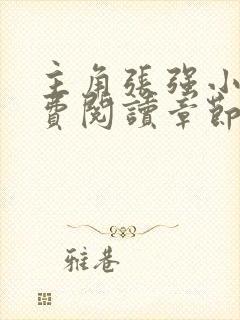 主角張强小
費閱讀章節
雅巷